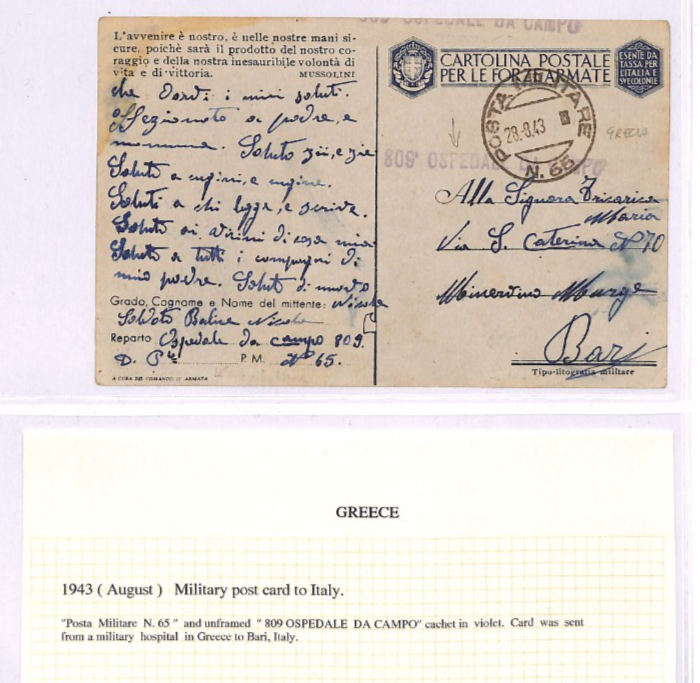 809° OSPEDALE DA CAMPO
L'avvenire è nostro, è nelle nostre mani si-
cure, poichè sarà il prodotto del nostro co-
raggio e della nostra inesauribile volontà di
vita e di vittoria. MUSSOLINI
che Dardi i miei saluti.
Affezionato a padre, e
mamma. Saluto zii, e zie
Saluto a cugini, e cugine.
Saluti a chi legge, e scrive.
Saluto ai vicini di casa mia
Saluto a tutti i compagni di
mio padre. Saluti di nuovo
Grado, Cognome e Nome del mittente: Nicola
Soldato Nicola
Reparto Ospedale da campo 809.
D. P. M. N° 65.
A CURA DEI COMANDI D'ARMATA
CARTOLINA POSTALE
PER LE FORZE ARMATE
ESENTE DA
TASSA PER
L'ITALIA E
SVE COLONIE
POSTA MILITARE
28.8.43
N. 65
GRECIA
809° OSPEDALE DA CAMPO
Alla Signora Tricarico
Maria
Via S. Caterina N° 70
Minervino Murge
Bari
Tipo-litografia militare
GREECE
1943 ( August ) Military post card to Italy.
"Posta Militare N. 65 " and unframed " 809 OSPEDALE DA CAMPO" cachet in violet. Card was sent
from a military hospital in Greece to Bari, Italy.